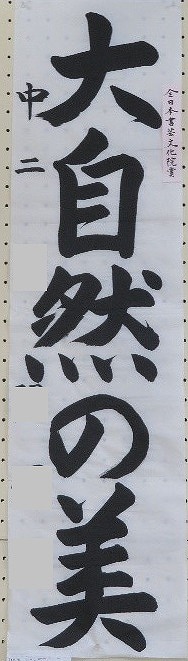 全日本書芸文化院賞
大自然の美
中二